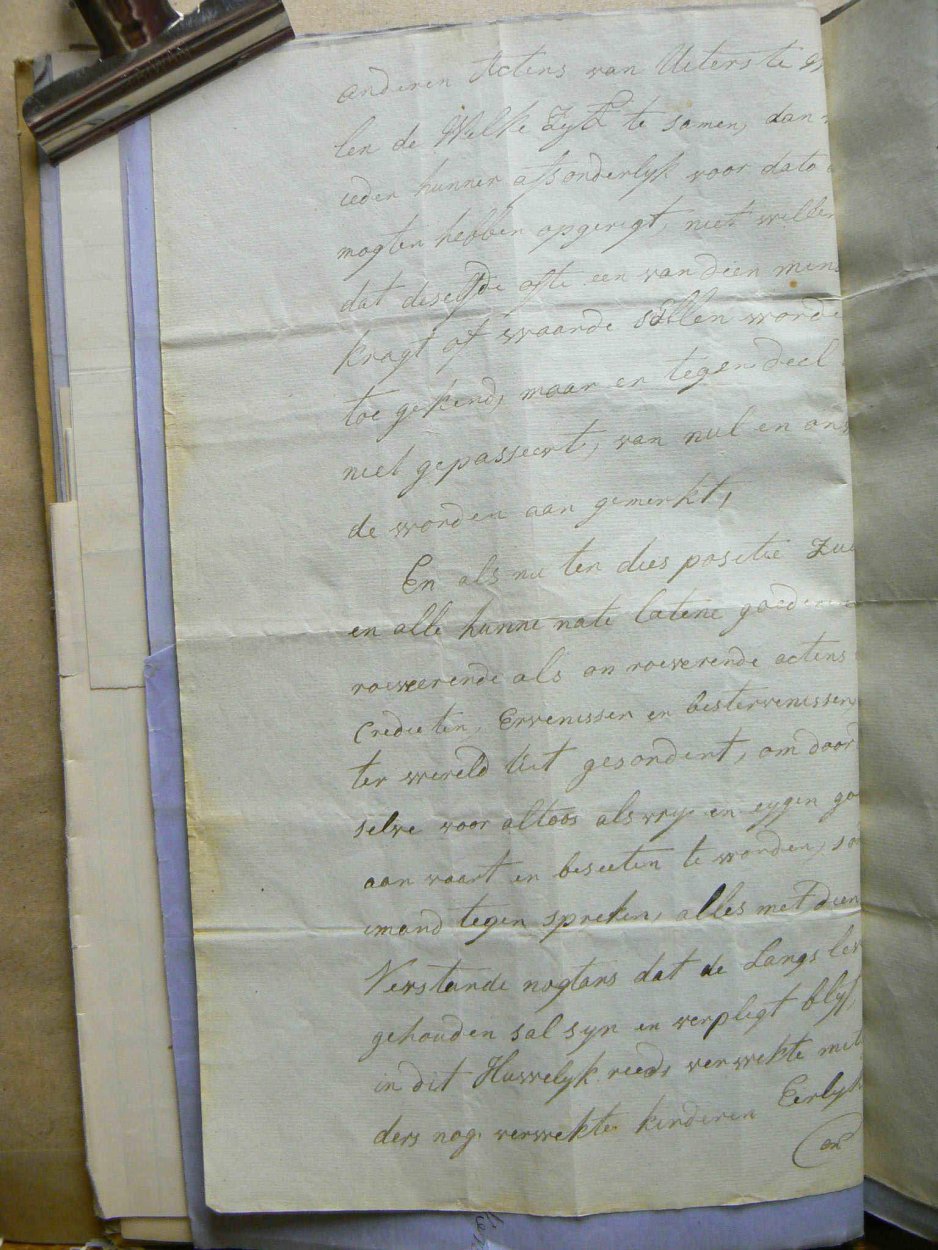 anderen Actens van Uiterste
len de Welke Zyl: te samen, dan
ieder hunner afsonderlyk voor dato
mogten hebben opgeregt, niet willen
dat deselfde ofte een van deen min
kragt of waarde sullen worde
toe gekend, maar en tegendeel
niet gepasseert, van nul en on
de worden aan gemerkt,
En als nu ten dies positie
en alle hunne nate latene goederen
roewerende als on roewerende actens
Credieten, Ervenissen en bestervenissen
ter wereld Uit gesondert, om door
selve voor altoos als vry en eygen go
aan vaart en beseeten te worden, so
imand tegen spreken, alles met dien
Verstande nogtans dat de Langs lev
gehouden sal syn en verpligt blyf
in dit Huwelyk reeds verwekte mit
ders nog verwekte kinderen Eerlyk
on